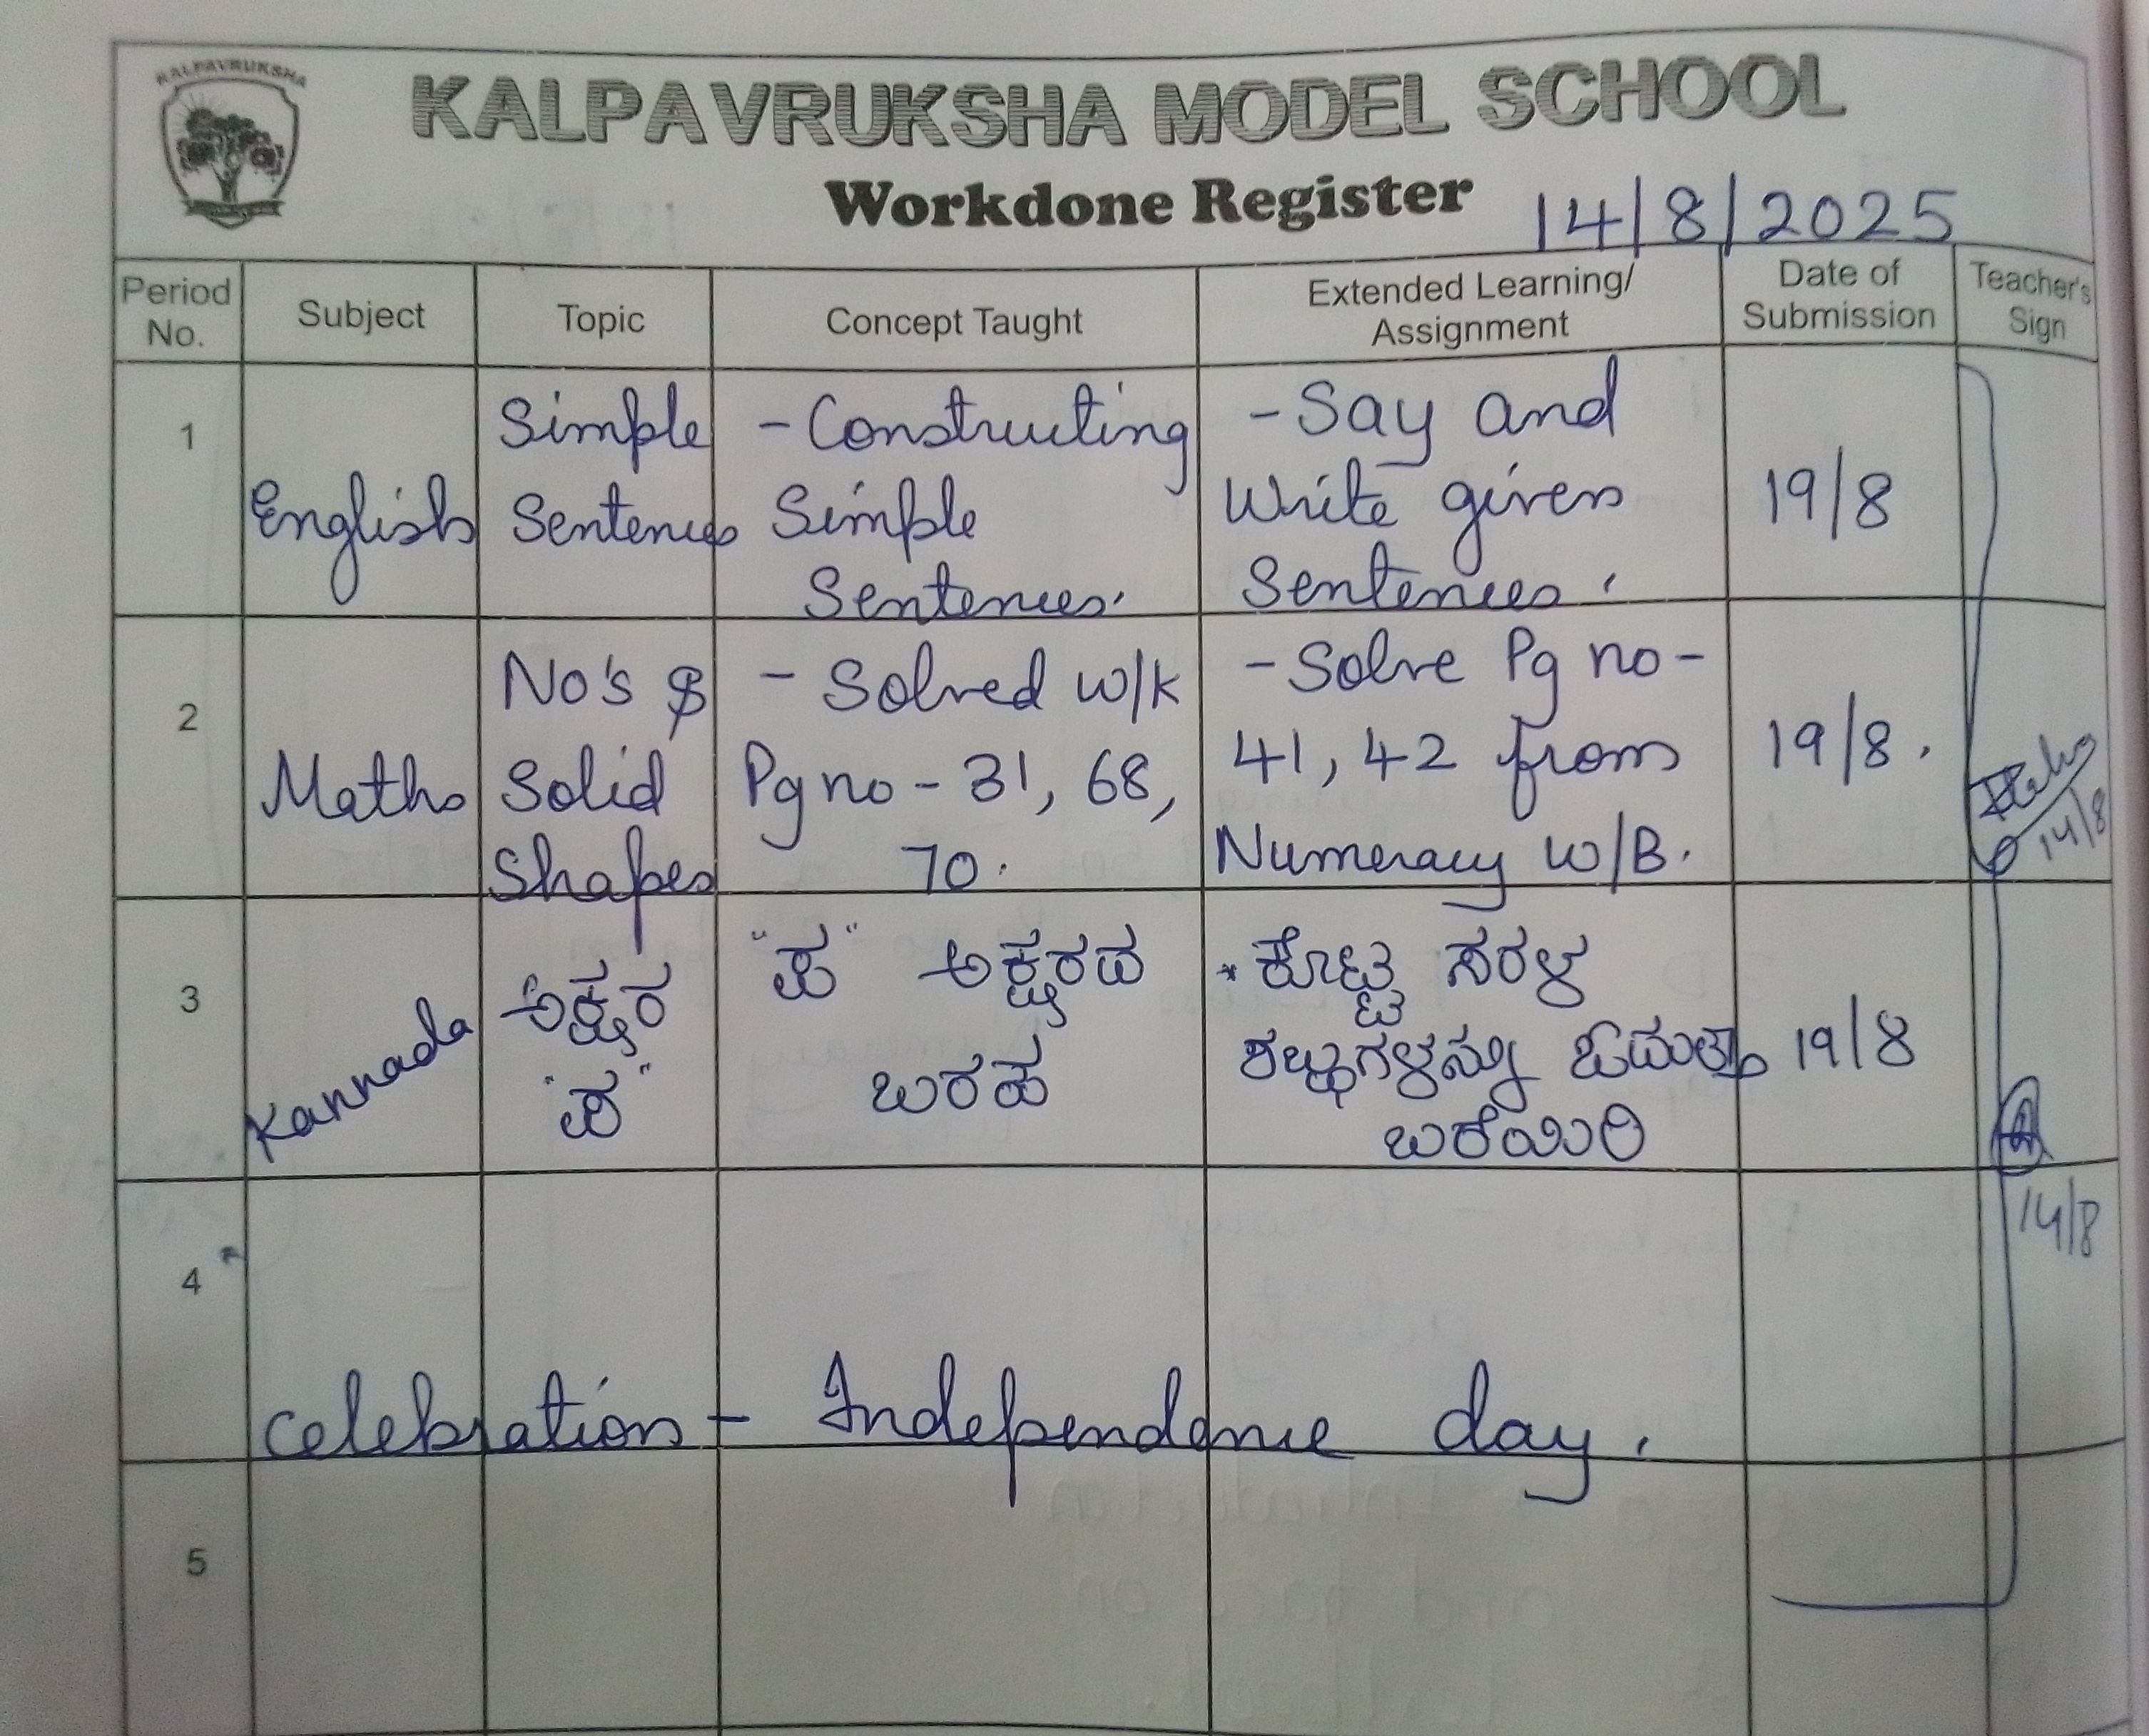 KALPAVRUKSHA
KALPAVRUKSHA MODEL SCHOOL
Workdone Register 14/8/2025
Period No.
Subject
Topic
Concept Taught
Extended Learning/
Assignment
Date of
Submission
Teacher's
Sign
1
English
Simple
Sentences
- Constructing
Simple
Sentences.
- Say and
Write given
Sentences.
19/8
2
Maths
No's &
Solid
Shapes
- Solved w/k
Pg no - 31, 68,
70.
- Solve Pg no -
41, 42 from
Numeracy w/B.
19/8.
14/8
3
Kannada
ಅಕ್ಷರ
"ಪ"
"ಪ" ಅಕ್ಷರದ
ಬರಹ
* ಕೊಟ್ಟ ಸರಳ
ಶಬ್ಧಗಳನ್ನು ಓದುತ್ತಾ
ಬರೆಯಿರಿ
19/8
14/8
4
Celebration - Independence day.
5